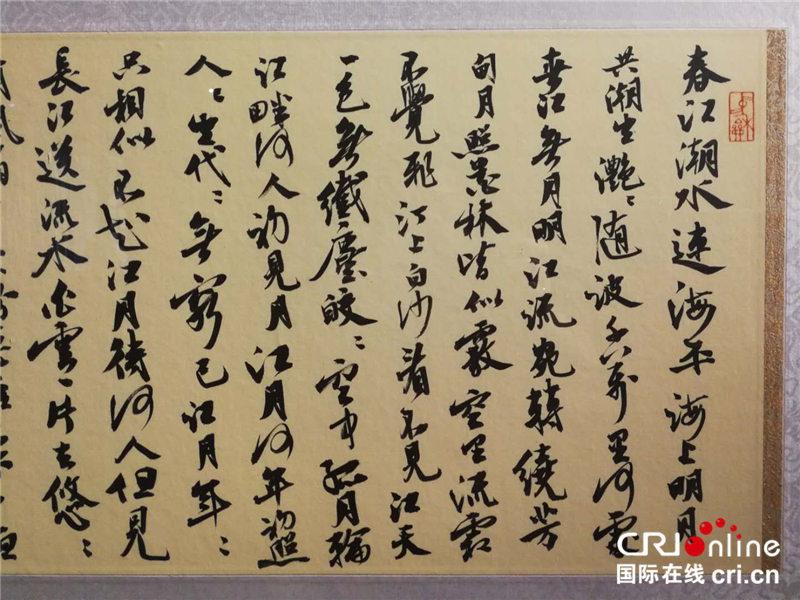 春江潮水連海平海上明月
共潮生灩〻随波千万里何處
春江無月明江流宛轉繞芳
甸月照花林皆似霰空里流霜
不覺飛汀上白沙看不見江天
一色無纖塵皎〻空中孤月輪
江畔何人初見月江月何年初照
人〻生代〻無窮已江月年〻
只相似不知江月待何人但見
長江送流水白雲一片去悠〻
CRI online
国际在线 cri.cn